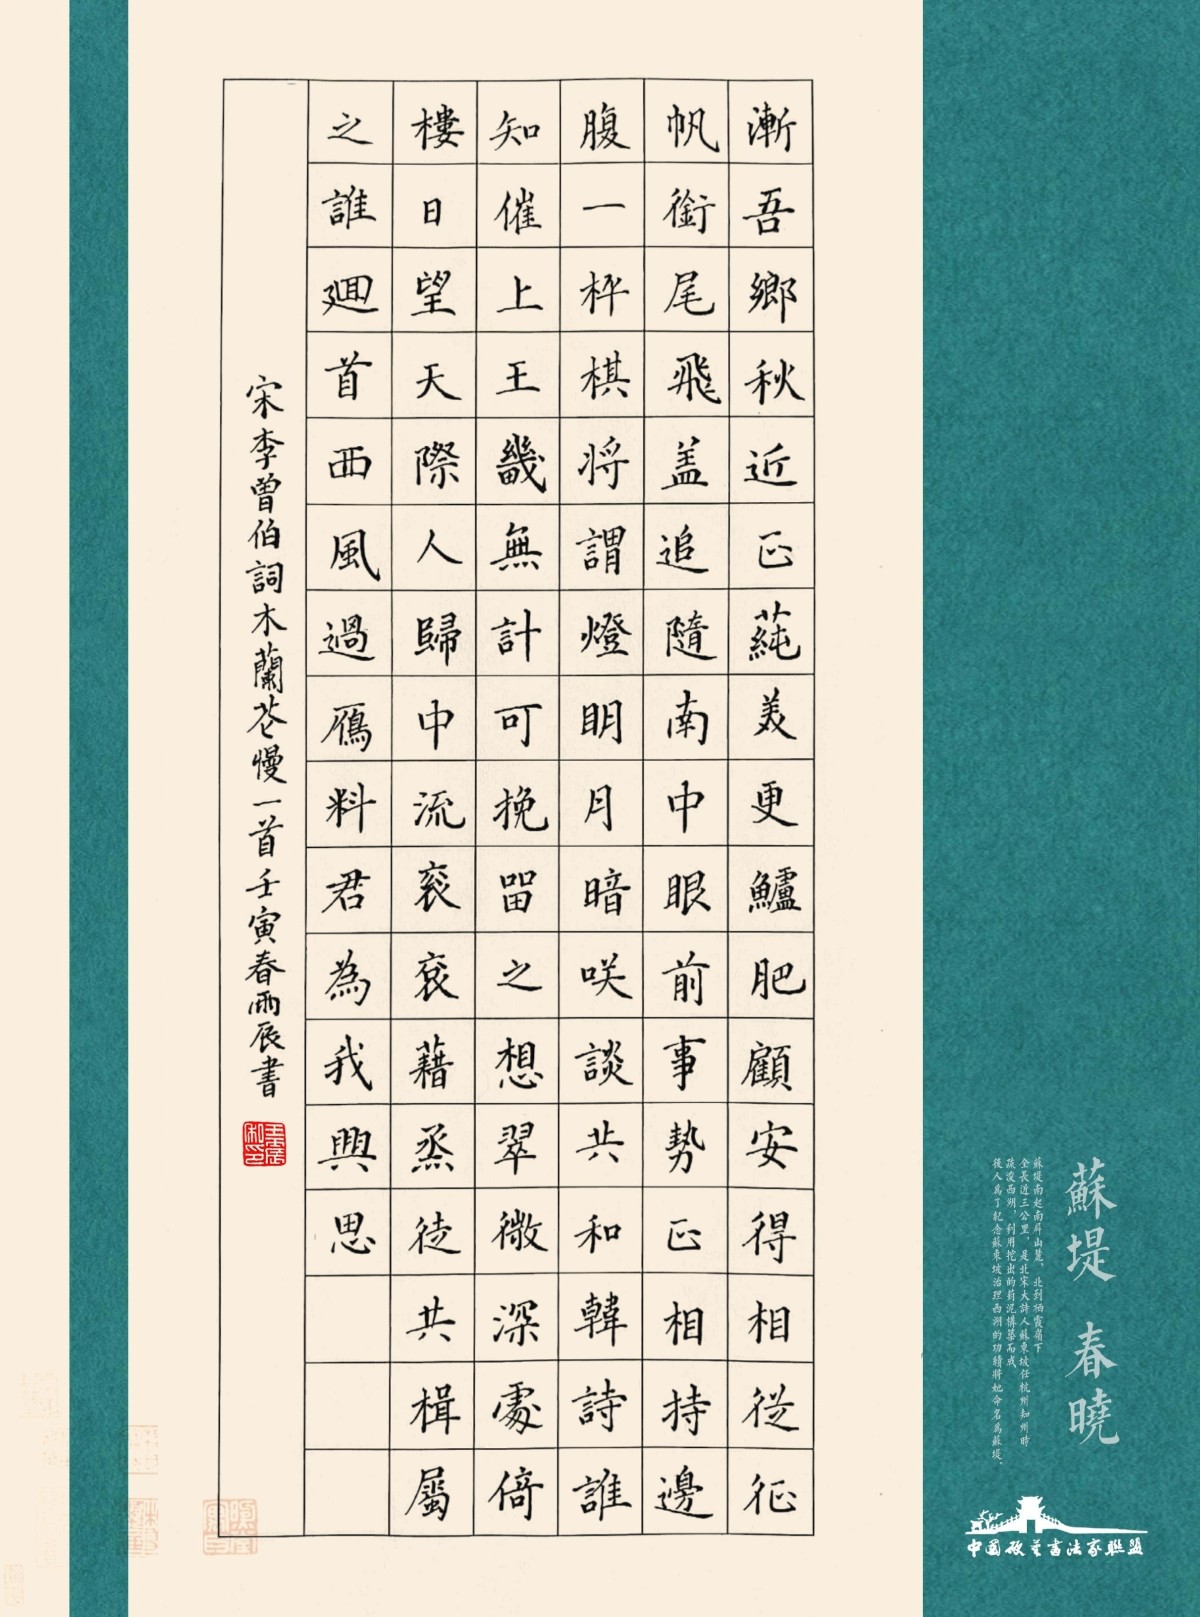 漸吾鄉秋近正蒓美更鱸肥顧安得相從征
帆銜尾飛盖追隨南中眼前事勢正相持邊
腹一枰棋將謂燈明月暗咲談共和韓詩誰
知催上王畿無計可挽留之想翠微深處倚
樓日望天際人歸中流衮衮藉烝徒共楫屬
之誰廻首西風過鴈料君為我興思
宋李曾伯詞木蘭花慢一首壬寅春雨辰書
蘇堤 春曉
蘇堤南起南屏山麓，北到栖霞嶺下
全長近三公里，是北宋大詩人蘇東坡任杭州知州時
疏浚西湖，利用挖出的葑泥構築而成
後人爲了紀念蘇東坡治理西湖的功績將她命名爲蘇堤。
中國硬筆書法家聯盟